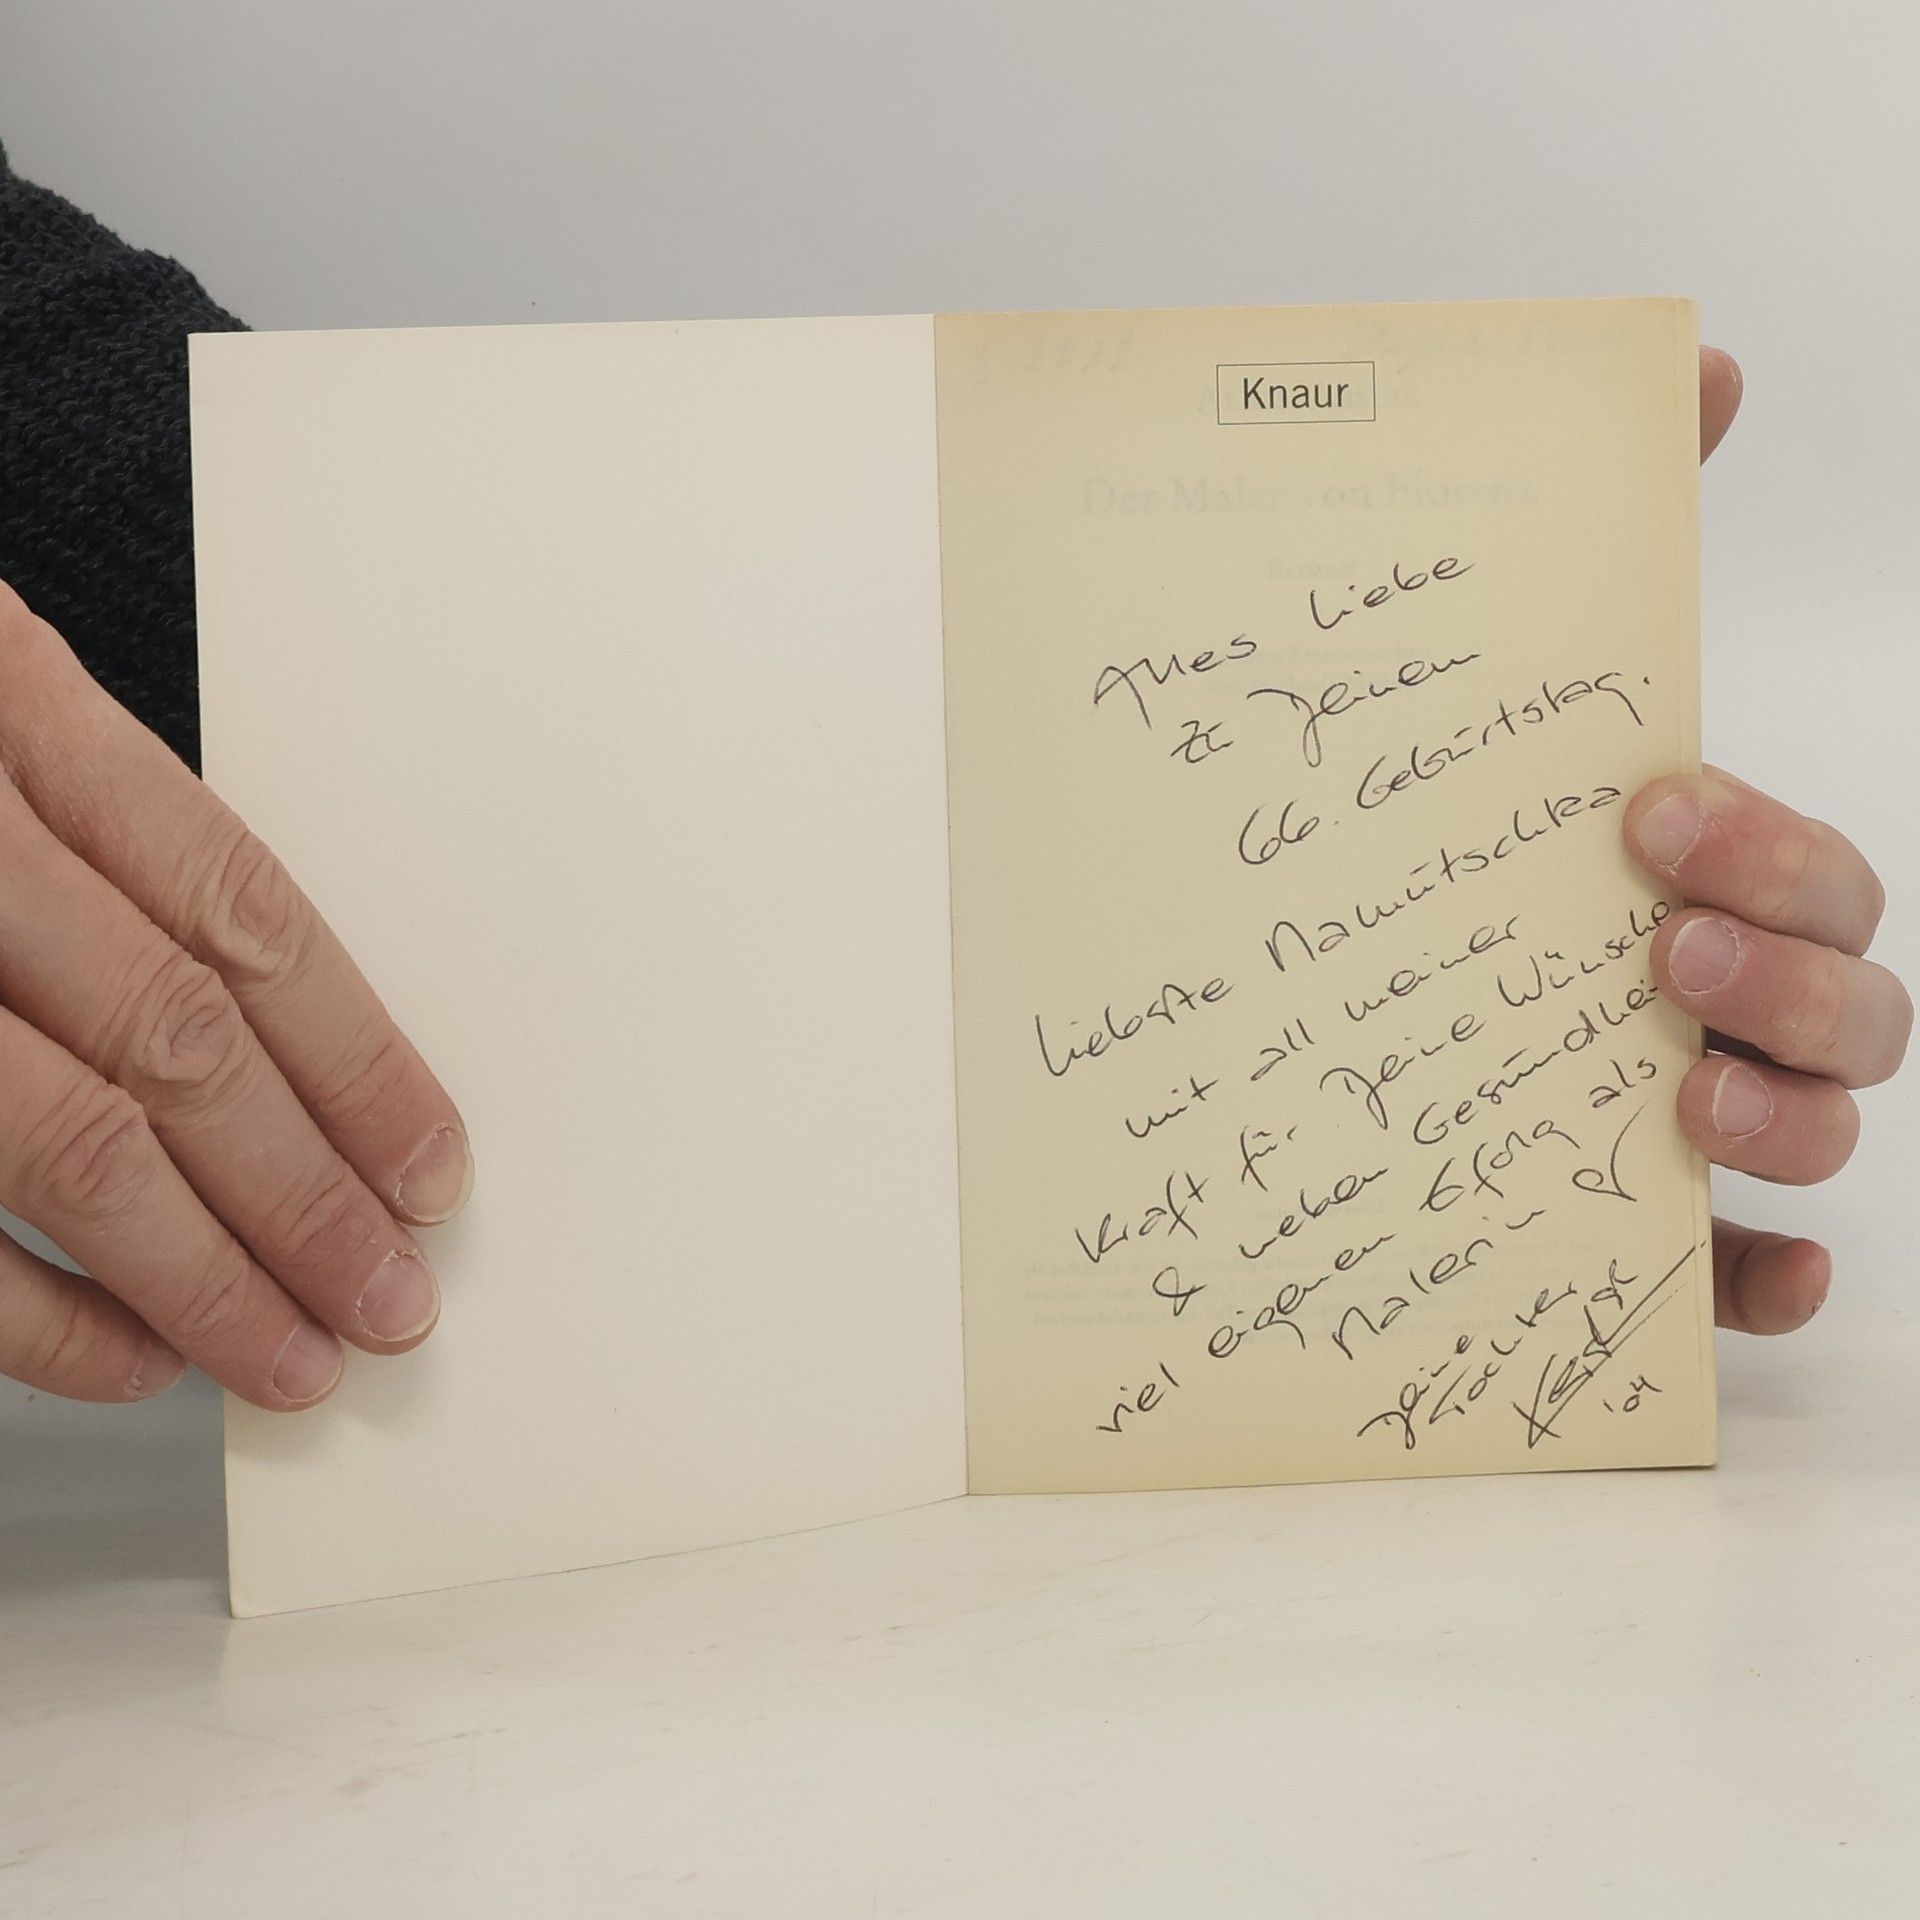 Knaur
Der Maler von Florenz
Roman
Alles Liebe
zu Deinem
66. Geburtstag.
Liebste Mamutschka
mit all meiner
Kraft für Deine Wünsche
& neben Gesundhei
viel eigenen Erfolg als
Malerin
Deine
Tochter
'04